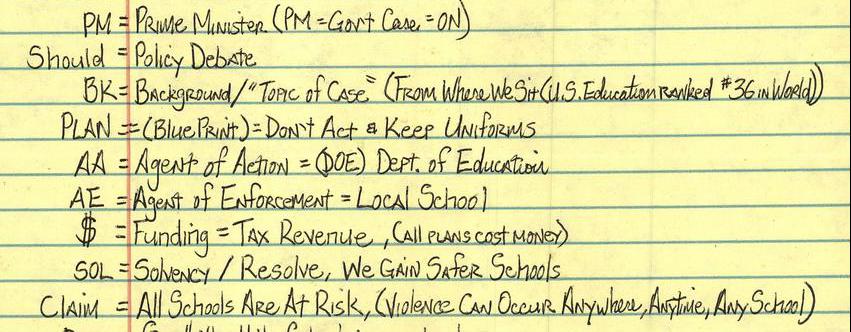 PM = Prime Minister (PM = Govt Case = ON)
Should = Policy Debate
BK = Background / "Topic of Case" (From Where We Sit (U.S. Education ranked #36 in World))
PLAN = (Blue Print) = Don't Act & Keep Uniforms
AA = Agent of Action = (DOE) Dept. of Education
AE = Agent of Enforcement = Local School
$ = Funding = Tax Revenue, (All plans cost money)
SOL = Solvency / Resolve, We Gain Safer Schools
Claim = All Schools Are At Risk, (Violence Can Occur Anywhere, Anytime, Any School)